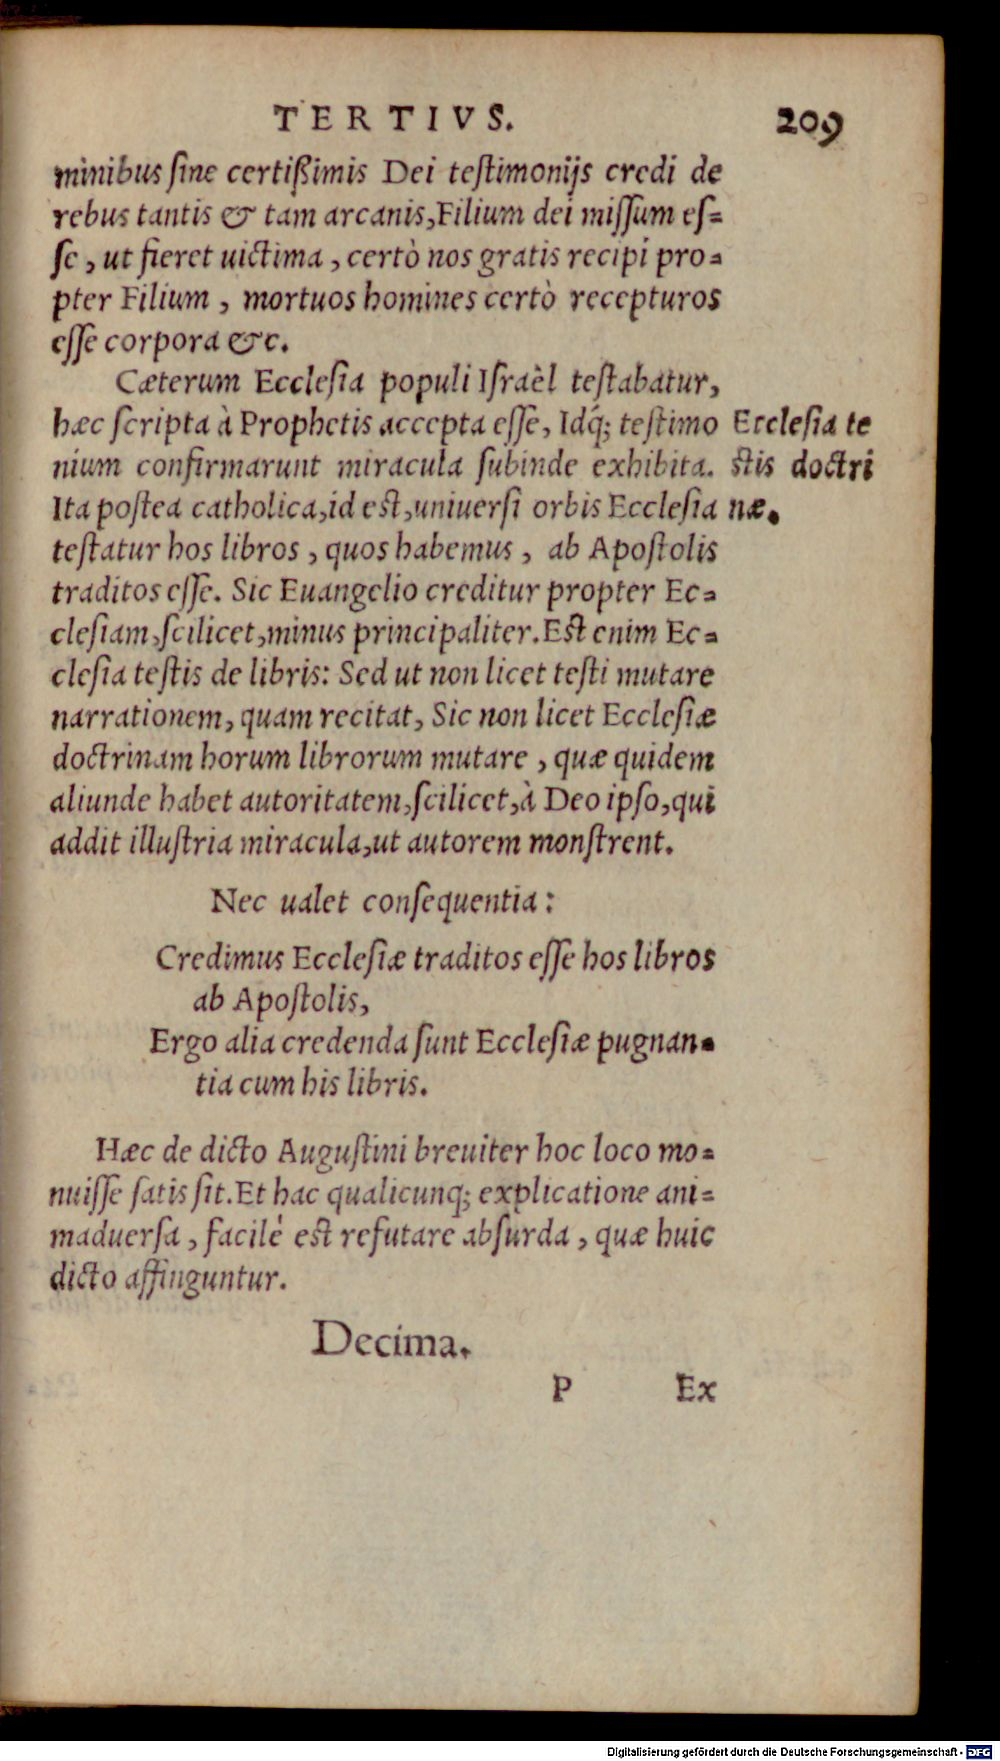 TERTIVS. 209
minibus ſine certißimis Dei teſtimonijs credi de
rebus tantis & tam arcanis, Filium dei miſſum eſ=
ſe, ut fieret uictima, certò nos gratis recipi pro=
pter Filium, mortuos homines certò recepturos
eſſe corpora &c.
Cæterum Eccleſia populi Iſraèl teſtabatur,
hæc ſcripta à Prophetis accepta eſſe, Idq́; teſtimo
nium confirmarunt miracula ſubinde exhibita.
Ita poſtea catholica, id eſt, uniuerſi orbis Eccleſia
teſtatur hos libros, quos habemus, ab Apoſtolis
traditos eſſe. Sic Euangelio creditur propter Ec=
cleſiam, ſcilicet, minus principaliter. Eſt enim Ec=
cleſia teſtis de libris: Sed ut non licet teſti mutare
narrationem, quam recitat, Sic non licet Eccleſiæ
doctrinam horum librorum mutare, quæ quidem
aliunde habet autoritatem, ſcilicet, à Deo ipſo, qui
addit illuſtria miracula, ut autorem monſtrent.
Eccleſia te
ſtis doctri
næ.
Nec ualet conſequentia:
Credimus Eccleſiæ traditos eſſe hos libros
ab Apoſtolis,
Ergo alia credenda ſunt Eccleſiæ pugnan=
tia cum his libris.
Hæc de dicto Auguſtini breuiter hoc loco mo=
nuiſſe ſatis ſit. Et hac qualicunq; explicatione ani=
maduerſa, facilé eſt refutare abſurda, quæ huic
dicto affinguntur.
Decima.
P Ex
Digitalisierung gefördert durch die Deutsche Forschungsgemeinschaft - DFG